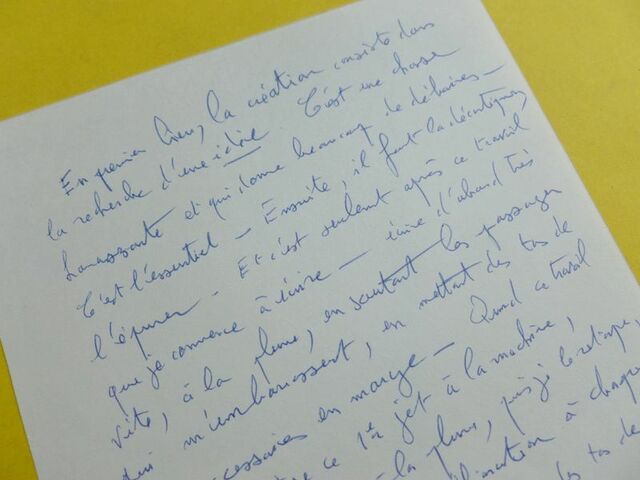 En premier lieu, la création consiste dans
la recherche d'une idée. C'est une chose
harassante et qui donne beaucoup de déboires -
C'est l'essentiel - Ensuite, il faut la décortiquer,
l'épurer - Et c'est seulement après ce travail
que je commence à écrire - écrire d'abord très
vite, à la plume, en sautant les passages
qui m'embarrassent, en mettant des tas de
en marge - Quand ce travail
ce 1er jet à la machine,
la plume, puis je le retape,
à chaque
tas de